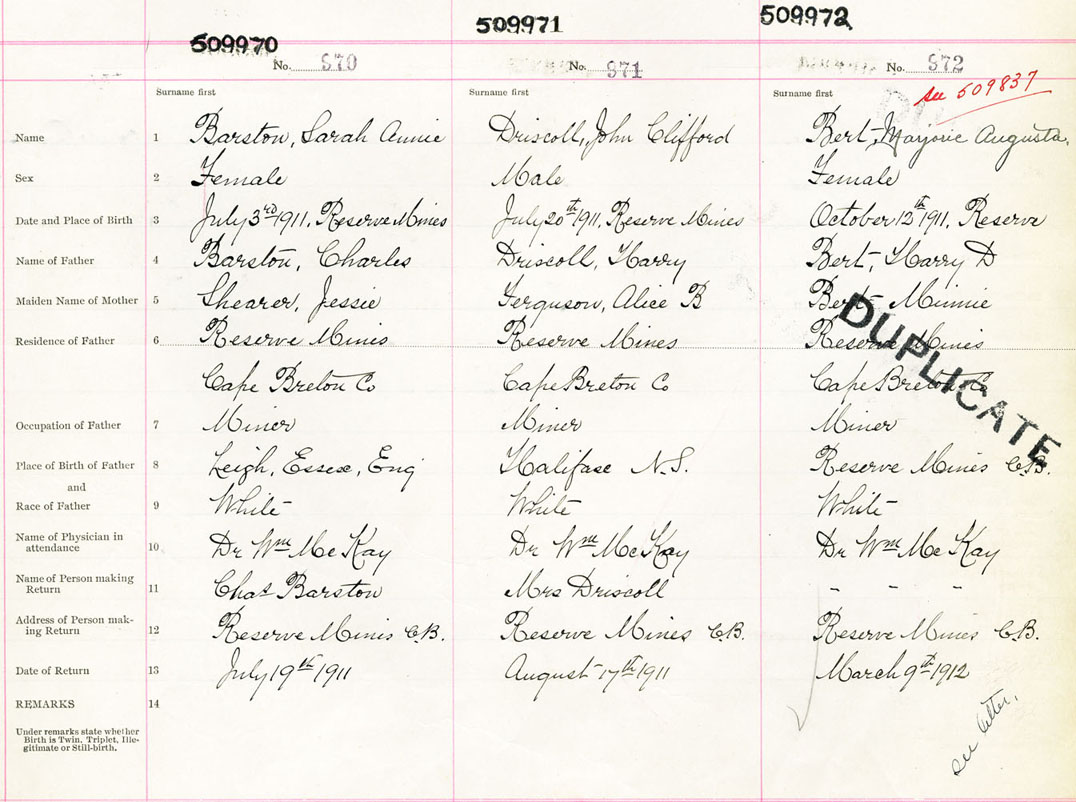 509970 509971 509972
No. 870 No. 871 No. 872
see 509837
Surname first Surname first Surname first
Name 1 Barston, Sarah Annie Driscoll, John Clifford Bert, Marjorie Augusta,
Sex 2 Female Male Female
Date and Place of Birth 3 July 3rd 1911, Reserve Mines July 20th 1911, Reserve Mines October 12th 1911, Reserve
Name of Father 4 Barston, Charles Driscoll, Harry Bert, Harry D
Maiden Name of Mother 5 Shearer, Jessie Ferguson, Alice B Bert Minnie
Residence of Father 6 Reserve Mines Reserve Mines Reserve Mines
DUPLICATE
Cape Breton Co Cape Breton Co Cape Breton Co
Occupation of Father 7 Miner Miner Miner
Place of Birth of Father 8 Leigh, Essex, Eng Halifax N.S. Reserve Mines C.B.
and
Race of Father 9 White White White
Name of Physician in
attendance 10 Dr Wm McKay Dr Wm McKay Dr Wm McKay
Name of Person making
Return 11 Chas Barston Mrs Driscoll - - -
Address of Person mak-
ing Return 12 Reserve Mines C.B. Reserve Mines C.B. Reserve Mines C.B.
Date of Return 13 July 19th 1911 August 17th 1911 March 9th 1912
REMARKS 14
see letter.
Under remarks state whether
Birth is Twin, Triplet, Ille-
gitimate or Still-birth.